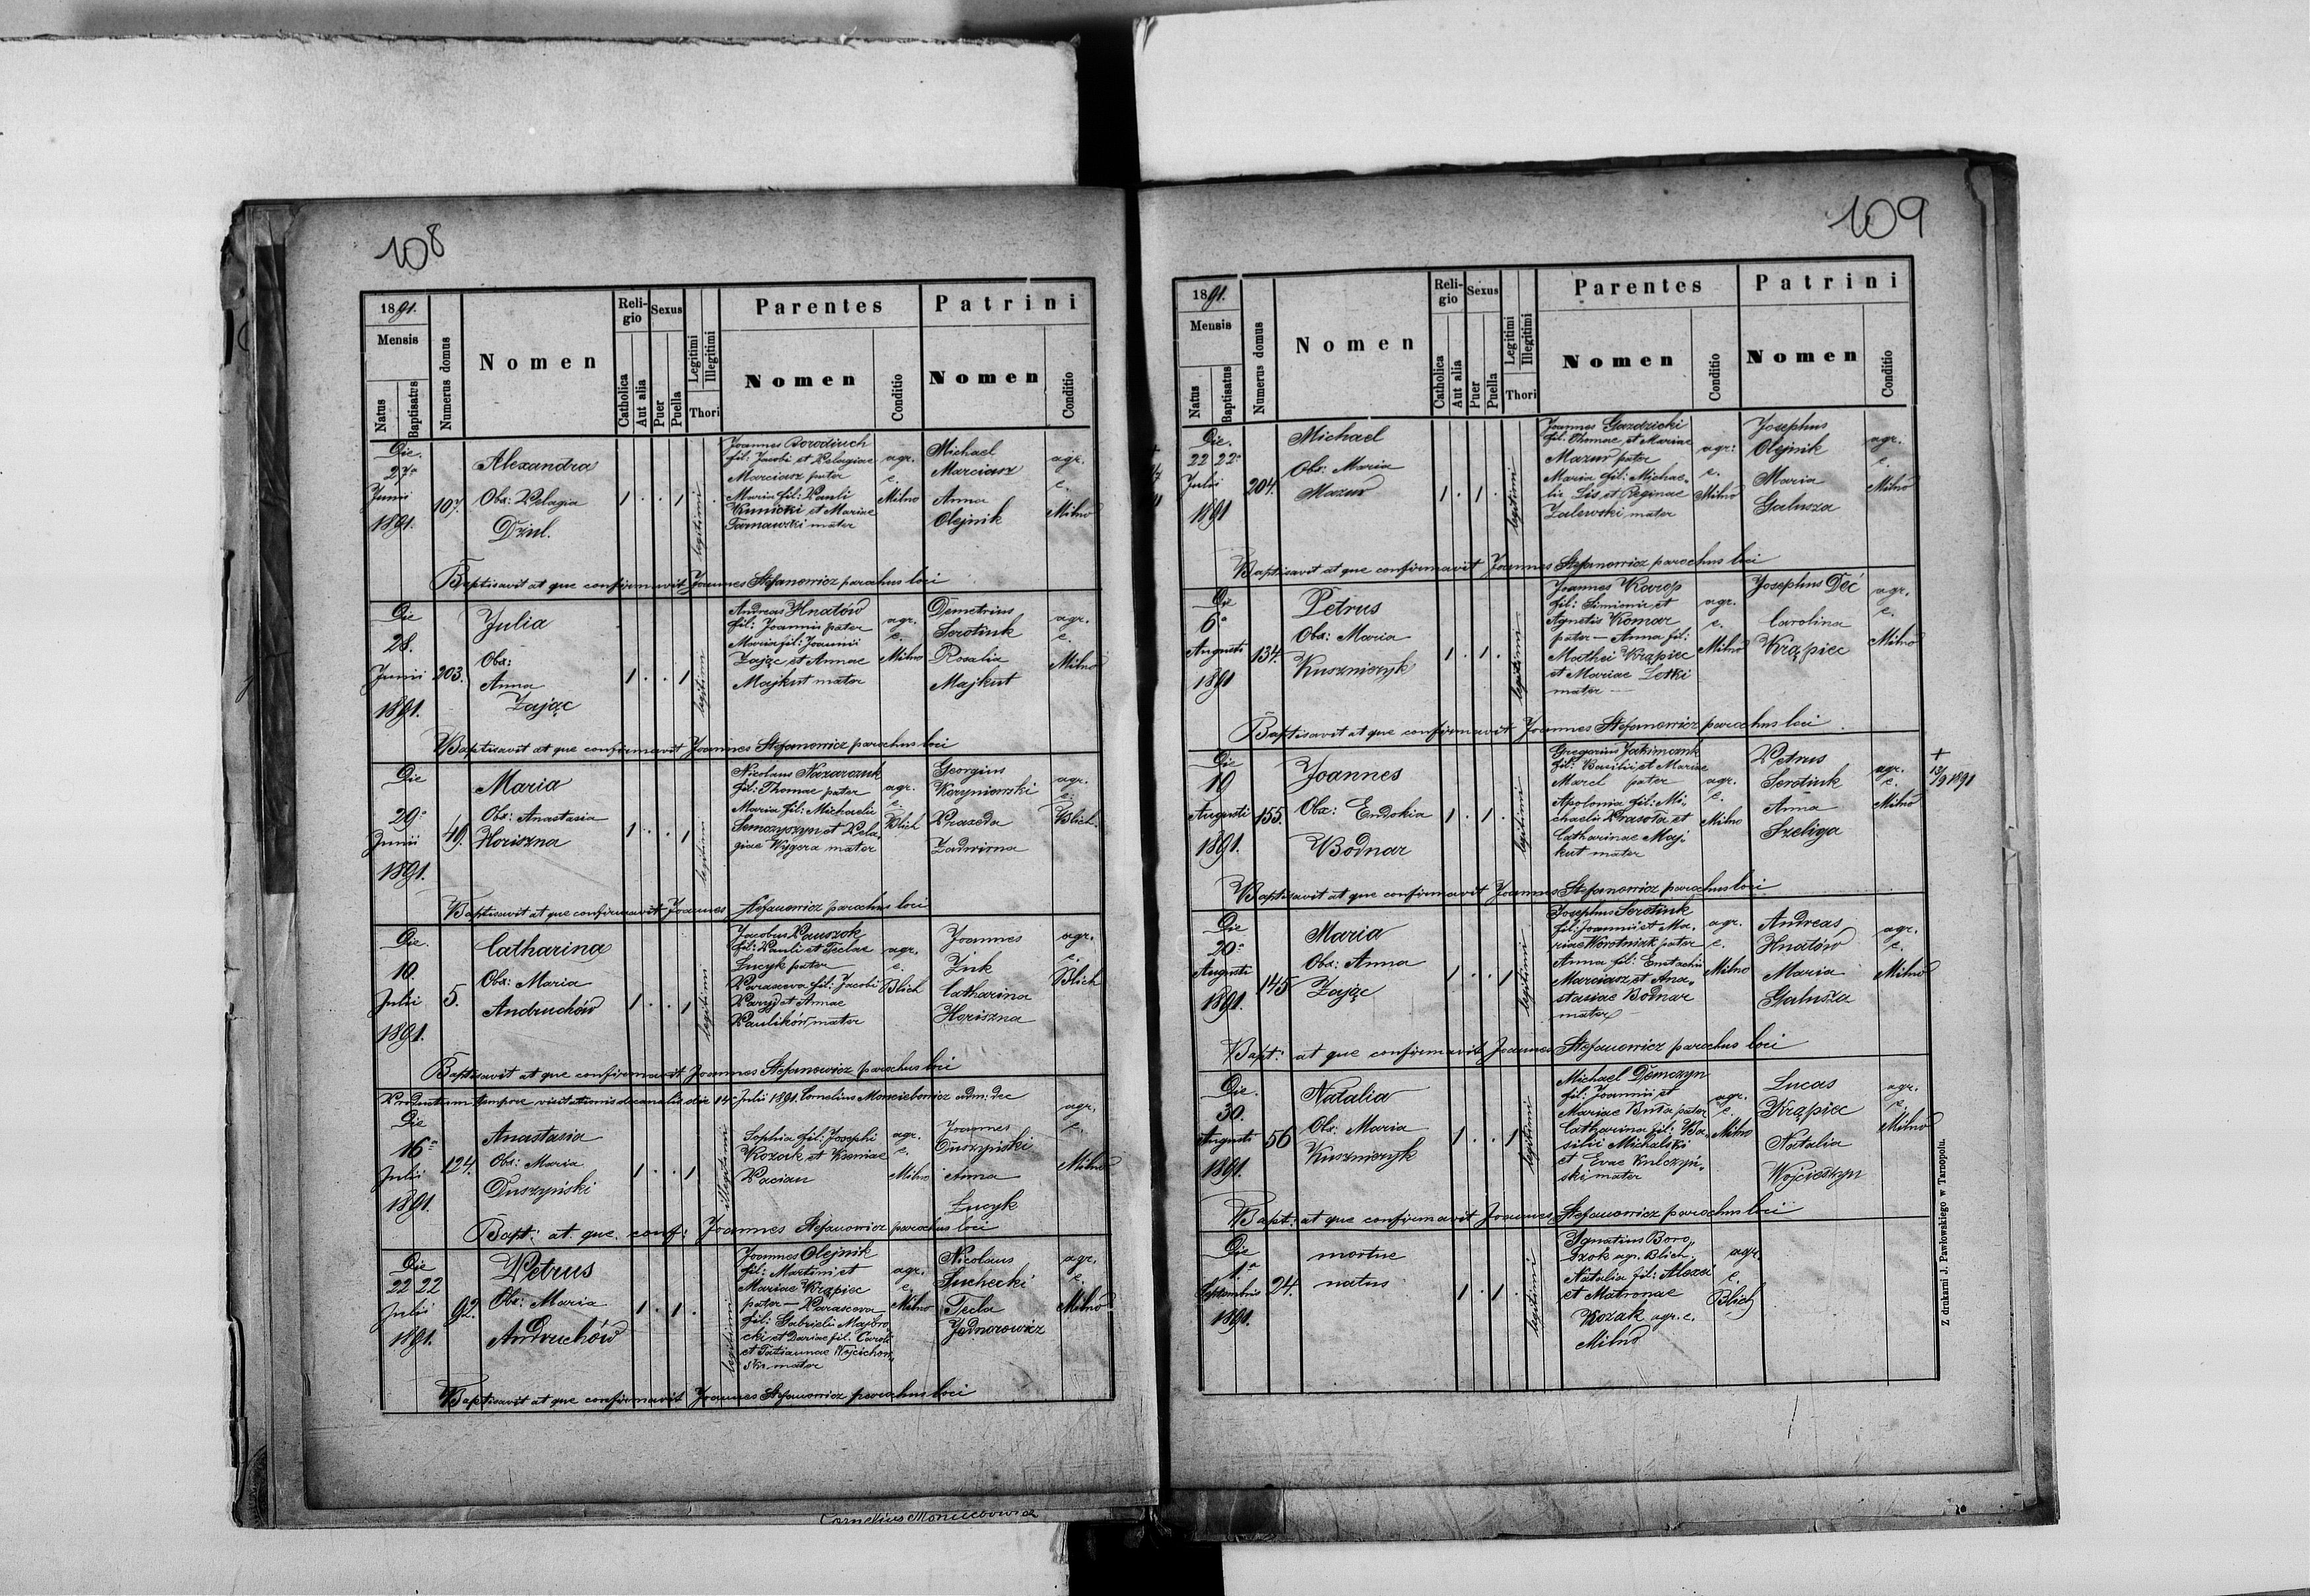 108
1891.
Mensis
Natus
Baptisatus
Numerus domus
Nomen
Religio
Catholica
Aut alia
Sexus
Puer
Puella
Legitimi
Illegitimi
Thori
Parentes
Nomen
Conditio
Patrini
Nomen
Conditio
Die
27a
Junii
1891.
107.
Alexandra
Obs: Pelagia
Dziul.
1 . . 1
legitimi
Joannes Borodiuch
fil: Jacobi et Pelagiae
Marciasz pater
Maria fil: Pauli
Kunicki et Mariae
Tarnawski mater
agr.
c.
Milno
Michael
Marciasz
Anna
Olejnik
agr.
c.
Milno
Baptisavit at que confirmavit Joannes Stefanowicz parochus loci
Die
28.
Junii
1891.
203.
Julia
Obs:
Anna
Zając
1 . . 1
legitimi
Andreas Hnatów
fil: Joannis pater
Maria fil: Joannis
Zając et Annae
Majkut mater
agr.
c.
Milno
Demetrius
Serotiuk
Rosalia
Majkut
agr.
c.
Milno
Baptisavit at que confirmavit Joannes Stefanowicz parochus loci
Die
29a
Junii
1891.
49.
Maria
Obs: Anastasia
Horiszna
1 . . 1
legitimi
Nicolaus Nazarczuk
fil: Thomae pater
Maria fil: Michaelis
Semczyszyn et Pela-
giae Wygera mater
agr.
c.
Blich
Georgius
Koryniowski
Praxeda
Zadwirna
agr.
c.
Blich
Baptisavit at que confirmavit Joannes Stefanowicz parochus loci
Die
10.
Julii
1891.
5.
Catharina
Obs: Maria
Andruchów
1 . . 1
legitimi
Jacobus Pauszok
fil: Pauli et Teclae
Lucyk pater
Parasceva fil: Jacobi
Paryj et Annae
Paulików mater
agr.
c.
Blich
Joannes
Żuk
Catharina
Horiszna
agr.
c.
Blich
Baptisavit at que confirmavit Joannes Stefanowicz parochus loci
Productum tempore visitationis decanalis die 14a Julii 1891. Cornelius Monciebowicz adm: dec
Die
16a
Julii
1891.
124.
Anastasia
Obs: Maria
Duszyński
1 . . 1
illegitimi
Sophia fil: Josephi
Kozak et Kseniae
Pacian
agr.
c.
Milno
Joannes
Duszyński
Anna
Lucyk
agr.
c.
Milno
Bapt: at que conf: Joannes Stefanowicz parochus loci
Die
22 22
Julii
1891.
92.
Petrus
Obs: Maria
Andruchów
1 . 1 .
legitimi
Joannes Olejnik
fil: Martini et
Mariae Krąpiec
pater — Parasceva
fil: Gabrielis Majbro-
cki et Dariae fil: Caroli
et Tatiannae Wojcichow-
ski mater
agr.
c.
Milno
Nicolaus
Suchecki
Tecla
Jednorowicz
agr.
c.
Milno
Baptisavit at que confirmavit Joannes Stefanowicz parochus loci
Cornelius Monciebowicz
109
1891.
Mensis
Natus
Baptisatus
Numerus domus
Nomen
Religio
Catholica
Aut alia
Sexus
Puer
Puella
Legitimi
Illegitimi
Thori
Parentes
Nomen
Conditio
Patrini
Nomen
Conditio
Die.
22 22a
Julii
1891
204.
Michael
Obs: Maria
Mazur
1 . 1 .
legitimi
Joannes Gazdzicki
fil: Thomae et Mariae
Mazur pater
Maria fil: Michae-
lis Lis et Reginae
Zalewski mater
agr:
c.
Milno
Josephus
Olejnik
Maria
Galusza
agr.
c.
Milno
Baptisavit at que confirmavit Joannes Stefanowicz parochus loci
Die
6a
Augusti
1891
134.
Petrus
Obs: Maria
Kuszniczyk
1 . 1 .
legitimi
Joannes Karop
fil: Simionis et
Agnetis Komar
pater — Anna fil:
Mathei Krąpiec
et Mariae Letki
mater —
agr.
c.
Milno
Josephus Deć
Carolina
Krąpiec
agr.
c.
Milno
Baptisavit at que confirmavit Joannes Stefanowicz parochus loci
Die
19
Augusti
1891.
155.
Joannes
Obs: Eudokia
Bodnar
1 . 1 .
legitimi
Gregorius Jakimczuk
fil: Basilii et Mariae
Marcl pater
Apolonia fil: Mi-
chaelis Krasota et
Catharinae Maj-
kut mater
agr.
c.
Milno
Petrus
Serotiuk
Anna
Szeliga
agr.
c.
Milno
+
13/9 1891
Baptisavit at que confirmavit Joannes Stefanowicz parochus loci
Die
20a
Augusti
1891.
145
Maria
Obs: Anna
Zając
1 . . 1
legitimi
Josephus Serotiuk
fil: Joannis et Ma-
riae Worotniak pater
Anna fil: Eustachii
Marciasz et Ana-
stasiae Bodnar
mater
agr.
c.
Milno
Andreas
Hnatów
Maria
Galusza
agr.
c.
Milno
Bapt: at que confirmavit Joannes Stefanowicz parochus loci
Die.
30.
Augusti
1891.
56
Natalia
Obs: Maria
Kuszniczyk
1 . . 1
legitimi
Michael Demczyn
fil: Joannis et
Mariae Buta pater
Catharina fil: Ba-
silii Michalski
et Evae Kulczyń-
ski mater
agr.
c.
Milno
Lucas
Krąpiec
Natalia
Wojcieszyn
agr.
c.
Milno
Bapt: at que confirmavit Joannes Stefanowicz parochus loci
Die
1a
Septembris
1891.
24.
mortue
natus
1 . 1 .
legitimi
Ignatius Boro-
szok agr. Blich:
Natalia fil: Alexii
et Matronae
Kozak agr. c.
Milno
agr.
c.
Blich
Z drukarni J. Pawłowskiego w Tarnopolu.